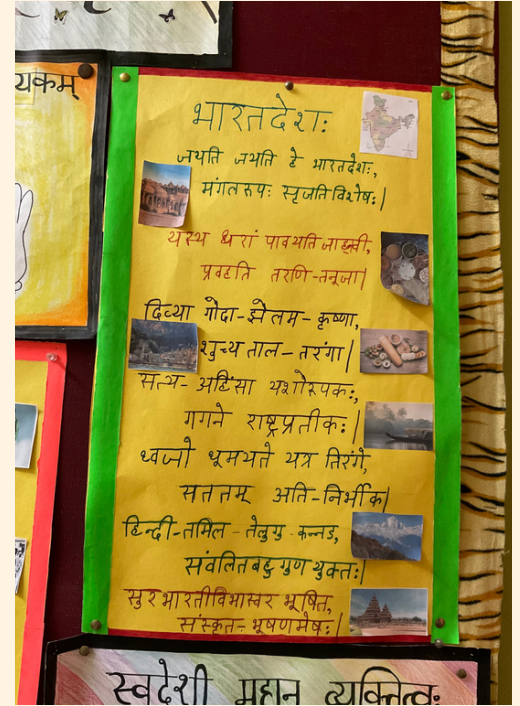 यकम्
भारतदेशः
जयति जयति हे भारतदेशः,
मंगलरूपः सृजतिविशेषः|
यस्य धरां पावयति जाह्नवी,
प्रवहति तरणि-तनूजा|
दिव्या गोदा-झेलम-कृष्णा,
शुच्य ताल-तरंगा|
सत्य-अहिंसा यशोरूपकः,
गगने राष्ट्रप्रतीकः|
ध्वजो धूमयते यत्र तिरंगे,
सततम् अति-निर्भीक|
हिन्दी-तमिल-तेलुगु-कन्नड,
संवलितबहु गुण युक्तः|
सुरभारतीविभास्वर भूषित,
संस्कृत-भूषणमेषः|
स्वदेशी महान व्यक्तित्वः